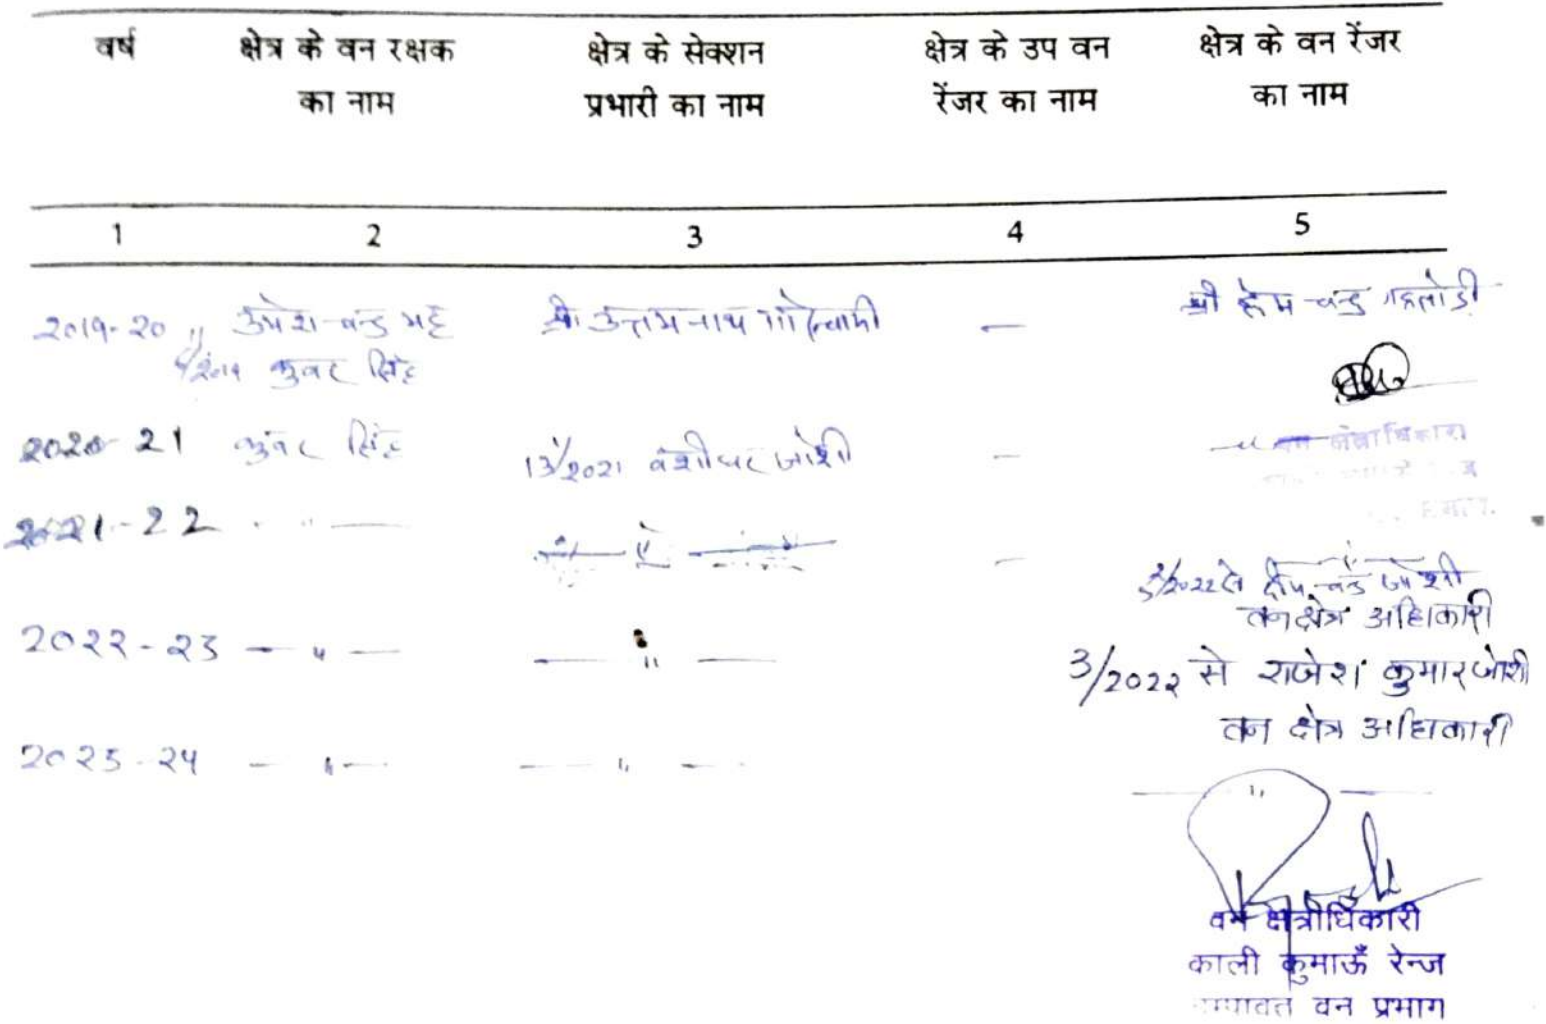 वर्ष क्षेत्र के वन रक्षक क्षेत्र के सेक्शन क्षेत्र के उप वन क्षेत्र के वन रेंजर
का नाम प्रभारी का नाम रेंजर का नाम का नाम
1 2 3 4 5
2019-20 उमेश चन्द्र भट्ट श्री उत्तम नाथ गोस्वामी — श्री हेम चन्द्र गहतोड़ी
कुंवर सिंह
2020-21 कुंवर सिंह 13/2021 वंशीधर जोशी — — " —
2021-22 — " — — " — —
3/2022 से दीप चन्द्र जोशी
वन क्षेत्र अधिकारी
2022-23 — " — — " — 3/2022 से राजेश कुमार जोशी
वन क्षेत्र अधिकारी
2023-24 — " — — " — — " —
वन क्षेत्राधिकारी
काली कुमाऊँ रेन्ज
चम्पावत वन प्रभाग